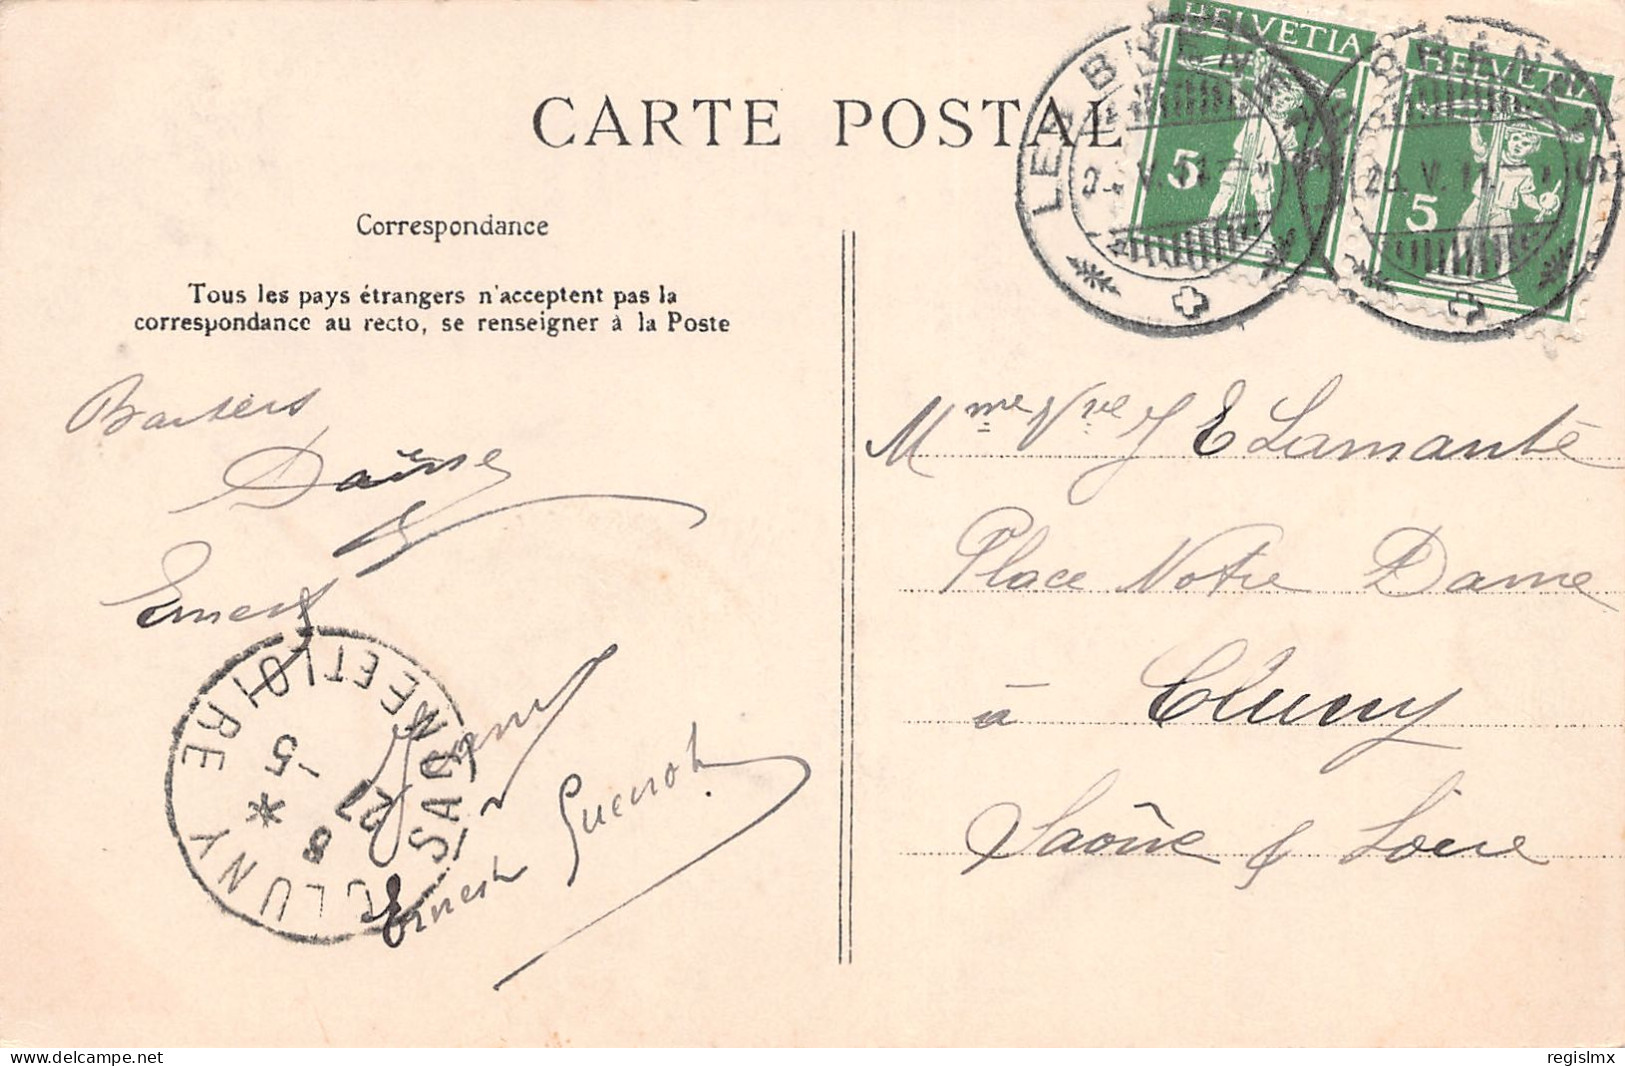 CARTE POSTALE
HELVETIA
5
HELVETIA
5
LES BRENETS
LES BRENETS
Correspondance
Tous les pays étrangers n'acceptent pas la
correspondance au recto, se renseigner à la Poste
Baisers
Ernest
Ernest Guenot
CLUNY
SAONE ET LOIRE
27 -5
Mme Vve J E Lamante
Place Notre Dame
à Cluny
Saône & Loire
www.delcampe.net
regislmx